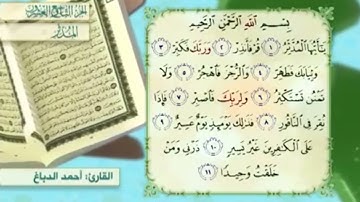 الجزء التاسع والعشرون
المدثر
بِسْمِ اللَّهِ الرَّحْمَٰنِ الرَّحِيمِ
يَا أَيُّهَا الْمُدَّثِّرُ ١ قُمْ فَأَنذِرْ ٢ وَرَبَّكَ فَكَبِّرْ ٣
وَثِيَابَكَ فَطَهِّرْ ٤ وَالرُّجْزَ فَاهْجُرْ ٥ وَلَا
تَمْنُن تَسْتَكْثِرُ ٦ وَلِرَبِّكَ فَاصْبِرْ ٧ فَإِذَا
نُقِرَ فِي النَّاقُورِ ٨ فَذَٰلِكَ يَوْمَئِذٍ يَوْمٌ عَسِيرٌ ٩
عَلَى الْكَافِرِينَ غَيْرُ يَسِيرٍ ١٠ ذَرْنِي وَمَنْ
خَلَقْتُ وَحِيدًا ١١
القارئ: أحمد الدباغ